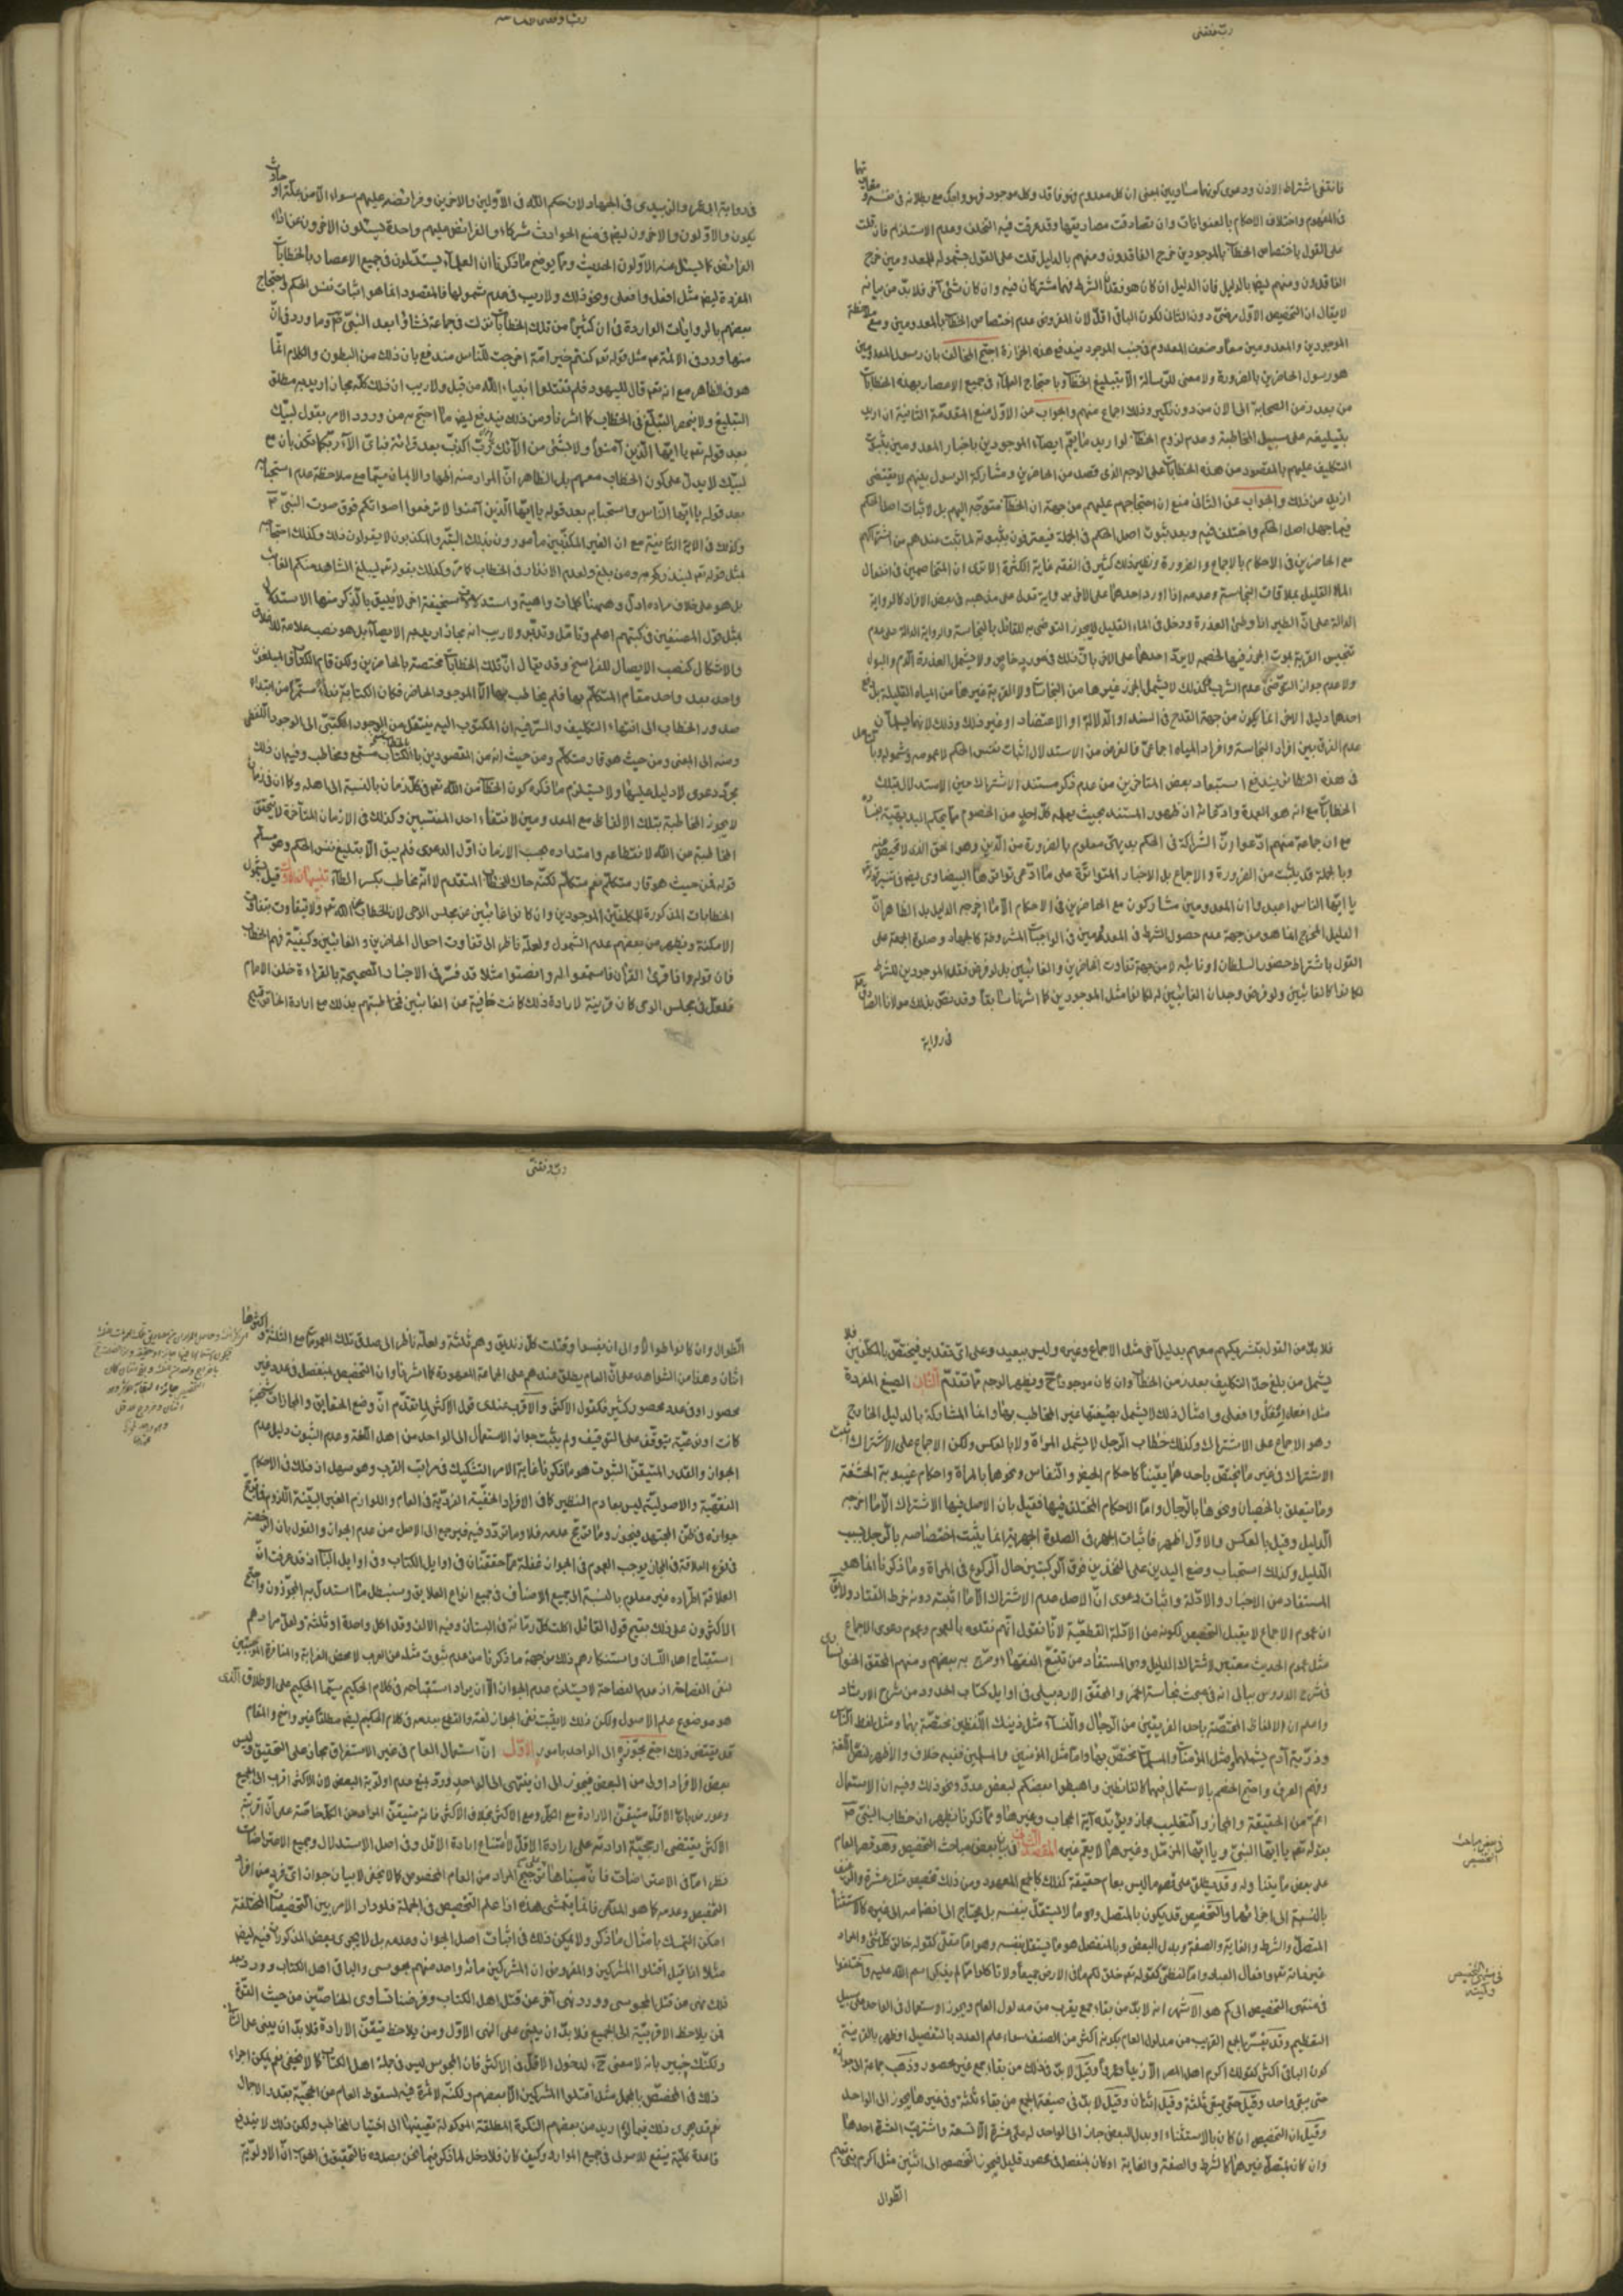 فانتفى اشتراط الاذن ودعوى كونهما متساويين بمعنى ان كل معدوم فهو فاقد وكل موجود فهو واجد مع بطلانه في نفسه
في المفهوم واختلاف الاحكام بالعنوانات وان تصادقت مصاديقها وقد عرفت فيه التخلف وعدم الاستلزام فان قلت
على القول باختصاص الخطاب بالموجودين خرج الفاقدون منهم بالدليل قلت على القول بشموله للمعدومين خرج
الفاقدون منهم ايضا بالدليل فان الدليل ان كان هو فقدان الشرط فهما مشتركان فيه وان كان شئ آخر فلا بد من بيانه
لا يقال ان التخصيص الاول مرضي دون الثاني لكون الباقي اقل لان المفروض عدم اختصاص الخطاب بالمعدومين ومع ملاحظة
الموجودين والمعدومين معا وضعف المعدوم في جنب الموجود يندفع هذه الحزازة احتج المخالف بان رسول المعدومين
هو رسول الحاضرين بالضرورة ولا معنى للرسالة الا تبليغ الخطاب وباحتجاج العلماء في جميع الاعصار بهذه الخطابات
من بعد زمن الصحابة الى الآن من دون نكير وذلك اجماع منهم والجواب عن الاول منع المقدمة الثانية ان اريد
بتبليغه على سبيل المخاطبة وعدم لزوم الخطاب لو اريد ما يعم ايصاء الموجودين باخبار المعدومين بثبوت
التكليف عليهم بالمقصود من هذه الخطابات على الوجه الذي قصد من الحاضرين ومشاركة الرسول بينهم لا يقتضي
ازيد من ذلك والجواب عن الثاني منع ان احتجاجهم عليهم من جهة ان الخطاب متوجه اليهم بل لاثبات اصل الحكم
فيما جهل اصل الحكم واختلف فيه وبعد ثبوت اصل الحكم في الجملة فيعترفون بثبوته لما ثبت عندهم من اشتراكهم
مع الحاضرين في الاحكام بالاجماع والضرورة ونظير ذلك كثير في الفقه غاية الكثرة الا ترى ان المتخاصمين في انفعال
الماء القليل بملاقات النجاسة وعدمه اذا اورد احدهما على الآخر رواية تدل على مذهبه في بعض الافراد كالرواية
الدالة على ان الطير اذا وطئ العذرة ودخل في الماء القليل لا يجوز التوضي به للقائل بالنجاسة والرواية الدالة على عدم
تنجيس القربة بموت الجرذ فيها لخصمه لا يرد احدهما على الآخر بان ذلك في مورد خاص ولا يشمل العذرة الدم والبول
ولا عدم جواز التوضي عدم الشرب وكذلك لا يشمل الجرذ غيرها من النجاسات ولا القربة غيرها من المياه القليلة بل يدفع
احدهما دليل الآخر انما يكون من جهة القدح في السند او الدلالة او الاعتضاد او غير ذلك وذلك لانهما يسلمان
عدم الفرق بين افراد النجاسة وافراد المياه اجماعا فالغرض من الاستدلال اثبات نفس الحكم لا عمومه وشموله
في هذه النظائر يندفع استبعاد بعض المتأخرين من عدم ذكر مستند الاشتراك حين الاستدلال بتلك
الخطابات مع انه هو العمدة وادعائه ان ظهور المستند بحيث يعلمه كل احد من الخصوم مما يحكم البديهة بفساده
مع ان جماعة منهم ادعوا ان الشراكة في الحكم بديهي معلوم بالضرورة من الدين وهو الحق الذي لا محيص عنه
وبالجملة قد يثبت من الضرورة والاجماع بل الاخبار المتواترة على ما ادعى تواترها البيضاوي ايضا في تفسير قوله
يا ايها الناس اعبدوا ان المعدومين مشاركون مع الحاضرين في الاحكام الا ما اخرجه الدليل بل الظاهر ان
الدليل المخرج انما هو من جهة عدم حصول الشرط في المعدومين في الواجبات المشروطة كالجهاد وصلوة الجمعة على
القول باشتراط حضور السلطان او نائبه لا من جهة تفاوت الحاضرين والغائبين بل لو فرض فقد الموجودين للشرط
لكانوا كالغائبين ولو فرض وجدان الغائبين له لكانوا مثل الموجودين كما اشرنا سابقا وقد نص بذلك مولانا الصادق
في رواية
في رواية ابي عمرو الزبيدي في الجهاد لان حكم الله في الاولين والآخرين وفرائضه عليهم سواء الا من علة او حادث
يكون والاولون والآخرون ايضا في منع الحوادث شركاء والفرائض عليهم واحدة يسئلون الآخرون عن اداء
الفرائض كما يسئل عنه الاولون الحديث ومما يوضح ما ذكرنا ان العلماء يستدلون في جميع الاعصار بالخطابات
المفردة ايضا مثل افعل وافعلي ونحو ذلك ولا ريب في عدم شمولها فالمقصود انما هو اثبات نفس الحكم واحتجاج
بعضهم بالروايات الواردة في ان كثيرا من تلك الخطابات نزلت في جماعة نشأوا بعد النبي ص وما ورد في ان
منها ورد في الائمة ع مثل قوله تعالى كنتم خير امة اخرجت للناس مندفع بان ذلك من البطون والكلام انما
هو في الظاهر مع انه تعالى قال لليهود فلم تقتلوا انبياء الله من قبل ولا ريب ان ذلك كله مجاز اريد به مطلق
التبليغ ولا ينحصر التبليغ في الخطاب كما اشرنا ومن ذلك يندفع ايضا ما احتج به من ورود الامر بقول لبيك
بعد قوله تعالى يا ايها الذين آمنوا ولا بشئ من آلائك رب اكذب بعد قرائة فباي آلاء ربكما تكذبان مع
لبيك لا يدل على كون الخطاب معهم بل الظاهر ان المراد منه اظهار الايمان سيما مع ملاحظة عدم استحبابه
بعد قوله يا ايها الناس واستحبابه بعد قوله يا ايها الذين آمنوا لا ترفعوا اصواتكم فوق صوت النبي ص
مثل قوله تعالى لينذركم به ومن بلغ ولعدم الانذار في الخطاب كلام وكذلك بقوله ليبلغ الشاهد منكم الغائب
بل هو على خلاف مراده ادل وههنا كلمات واهية واستدلالات سخيفة اخرى لا يليق بالذكر منها الاستدلال
بمثل قول المصنفين في كتبهم اعلم وتأمل وتدبر ولا ريب انه مجاز اريد به الايصاء بل هو نصب علامة
والاشكال كنصب الاميال للفراسخ وقد يقال ان تلك الخطابات مختصة بالحاضرين ولكن قام الكتاب والمبلغون
واحدا بعد واحد مقام المتكلم بها فلم يخاطب بها الا الموجود الحاضر فكان الكتابة نداء مستمر من ابتداء
صدور الخطاب الى انتهاء التكليف والسر فيه ان المكتوب اليه ينتقل من الوجود الكتبي الى الوجود اللفظي
ومنه الى المعنى ومن حيث هو قار متكلم ومن حيث انه من المقصودين بالخطاب مستمع ومخاطب وفيه ان ذلك
مجرد دعوى لا دليل عليها ولا يستلزم ما ذكره كون الخطاب من الله تعالى في كل زمان بالنسبة الى اهله وكما ان
لا يجوز المخاطبة بتلك الالفاظ مع المعدومين لانتفاء احد المنتسبين وكذلك في الازمان المتأخرة لا يتحقق
المخاطبة من الله لانقطاعه وامتداده بحسب الازمان اول الدعوى فلم يبق الا تبليغ نفس الحكم وهو مسلم
قوله فمن حيث هو قار متكلم نعم متكلم لكنه حاك للخطاب المتقدم لا انه مخاطب بكسر الطاء تنبيهان الاول قيل بشمول
الخطابات المذكورة للمكلفين الموجودين وان كانوا غائبين عن مجلس الوحي لان الخطاب عن الله تعالى ولا يتفاوت بتفاوت
الامكنة ويظهر من بعضهم عدم الشمول ولعله ناظر الى تفاوت احوال الحاضرين والغائبين وكيفية فهم الخطاب
فان قوله واذا قرئ القرآن فاستمعوا له وانصتوا مثلا قد فسر في الاخبار الصحيحة بالقراءة خلف الامام
فلعل في مجلس الوحي كان قرينة لارادة ذلك كانت خافية من الغائبين فمخاطبتهم بذلك مع ارادة الخاص قبيح
فلا بد من القول بتشريكهم معهم بدليل آخر مثل الاجماع وغيره وليس ببعيد وعلى اي تقدير فيختص بالمكلفين
يشمل من بلغ حد التكليف بعد زمن الخطاب وان كان موجودا ح ويظهر الوجه مما تقدم الثاني الصيغ المفردة
مثل افعل وافعلي وامثال ذلك لا يشمل بصيغتها غير المخاطب بها وانما المشاركة بالدليل الخارج
وهو الاجماع على الاشتراك وكذلك خطاب الرجل لا يشمل المرأة ولا بالعكس ولكن الاجماع على الاشتراك ثبت
الاشتراك في غير ما يختص باحدهما يقينا كاحكام الحيض والنفاس ونحوها بالمرأة واحكام غيبوبة الحشفة
وما يتعلق بالخصيان ونحوها بالرجال واما الاحكام المختلف فيها فقيل بان الاصل فيها الاشتراك الا ما اخرجه
الدليل وقيل بالعكس والاول اظهر فاثبات الجهر في الصلوة الجهرية انما يثبت اختصاصه بالرجل بسبب
الدليل وكذلك استحباب وضع اليدين على الفخذين فوق الركبتين حال الركوع في المرأة وما ذكرنا انما هو
المستفاد من الاخبار والادلة واثبات دعوى ان الاصل عدم الاشتراك الا ما اثبته دونه خرط القتاد ولا يرد
ان عموم الاجماع لا يقبل التخصيص لكونه من الادلة القطعية لانا نقول انهم نقلوه بالعموم وعموم دعوى الاجماع
مثل عموم الحديث معتبر لاشتراك الدليل وهو المستفاد من تتبع الفقهاء وصرح به بعضهم ومنهم المحقق الخونساري
في شرح الدروس ببالي انه في مبحث نجاسة الخمر والمحقق الاردبيلي في اوايل كتاب الحدود من شرح الارشاد
واعلم ان الالفاظ المختصة باحد الفريقين من الرجال والنساء مثل ذينك اللفظين مختصة بهما ومثل لفظ الناس
وذرية آدم يشملهما ومثل المؤمنات والمسلمات تختص بها واما مثل المؤمنين والمسلمين ففيه خلاف والاظهر
وفهم العرف واحتج الخصم بالاستعمال فيهما كالقانتين واهبطوا بعضكم لبعض عدو ونحو ذلك وفيه ان الاستعمال
اعم من الحقيقة والمجاز والتغليب مجاز ويؤيده آية الحجاب وغيرها ومما ذكرنا يظهر ان خطاب النبي ص
بقوله تعالى يا ايها النبي ويا ايها المزمل وغيرهما لا يعم غيره المقصد الثالث في بيان بعض مباحث التخصيص وهو قصر العام
على بعض ما يتناوله وقد يطلق على قصر ما ليس بعام حقيقة كذلك كالجمع المعهود ومن ذلك تخصيص مثل عشرة والرغيف
بالنسبة الى اجزائهما والتخصيص قد يكون بالمتصل وهو ما لا يستقل بنفسه بل يحتاج الى انضمامه الى غيره كالاستثناء
المتصل والشرط والغاية والصفة وبدل البعض وبالمنفصل هو ما يستقل بنفسه وهو اما عقلي كقوله خالق كل شئ والمراد
غير ذاته تعالى وافعال العباد واما لفظي كقوله تعالى خلق لكم ما في الارض جميعا ولا تأكلوا مما لم يذكر اسم الله عليه واختلفوا
في منتهى التخصيص الى كم هو الاشهر انه لا بد من بقاء جمع يقرب من مدلول العام ويجوز الاستعمال في الواحد على سبيل
التعظيم وقد يفسر الجمع القريب من مدلول العام بكونه اكثر من النصف سواء علم العدد بالتفصيل او ظهر بالقرينة
كون الباقي اكثر كقولك اكرم اهل المصر الا زيدا وعمروا وقيل لا بد في ذلك من بقاء جمع غير محصور وذهب جماعة الى جوازه
حتى يبقى واحد وقيل حتى يبقى ثلثة وقيل اثنان وقيل لا بد في صيغة الجمع من بقاء ثلثة وفي غيرها يجوز الى الواحد
وقيل ان التخصيص ان كان بالاستثناء او بدل البعض جاز الى الواحد له على عشرة الا تسعة واشتريت العشرة احدها
وان كان بمتصل غيرهما كالشرط والصفة والغاية او كان بمنفصل في محصور قليل فيجوز التخصيص الى اثنين مثل اكرم بني تميم
الطوال
في بيان مباحث
التخصيص
في منتهى التخصيص
وكميته
الطوال وان كانوا طوالا او الى ان يفسقوا وقتلت كل زنديق وهم ثلثة ولعله ناظر الى صدق تلك العمومات مع الثلثة
اثنان وهذا من الشواهد على ان العام يطلق عندهم على الجماعة المعهودة كما اشرنا وان التخصيص بمنفصل في عدد غير
محصور او في عدد محصور كثير فكقول الاكثر والاقرب عندي قول الاكثر لما تقدم ان وضع الحقايق والمجازات شخصية
كانت او نوعية يتوقف على التوقيف ولم يثبت جواز الاستعمال الى الواحد من اهل اللغة وعدم الثبوت دليل عدم
الجواز والقدر المتيقن الثبوت هو ما ذكرنا غاية الامر التشكيك في مراتب القرب وهو سهل اذ ذلك في الاحكام
الفقهية والاصولية ليس بعادم النظير كما في الافراد الخفية الفردية في العام واللوازم الغير البينة اللزوم
جوازه في ظن المجتهد فيجوز وما ترجح عدمه فلا وما تردد فيه فيرجع الى الاصل من عدم الجواز والقول بان الرخصة
في نوع العلاقة في المجاز يوجب العموم في الجواز غفلة عما حققناه في اوايل الكتاب وفي اوايل الباب اذ قد عرفت ان
العلاقة اطراده غير معلوم بالنسبة الى جميع الاصناف في جميع انواع العلايق وسنبطل ما استدل به المجوزون واحتج
الاكثرون على ذلك بقبح قول القائل اكلت كل رمانة في البستان وفيه الآلاف وقد اكل واحدة او ثلثة ولعل مرادهم
استقباح اهل اللسان واستنكارهم ذلك من جهة ما ذكرنا من عدم ثبوت مثله من العرب لا محض الغرابة والمنافرة
لنفي الفصاحة اذ عدم الفصاحة لا يستلزم عدم الجواز الا ان يراد استقباحه في كلام الحكيم سيما الحكيم على الاطلاق الذي
هو موضوع علم الاصول ولكن ذلك لا يثبت نفي الجواز لغة والقطع بعدمه في كلام الحكيم ايضا مطلقا غير واضح والمقام
قد يقتضي ذلك احتج مجوزه الى الواحد بامور الاول ان استعمال العام في غير الاستغراق مجاز على التحقيق وليس
بعض الافراد اولى من البعض فيجوز الى ان ينتهي الى الواحد ورد بمنع عدم اولوية البعض لان الاكثر اقرب الى الجميع
وعورض بان الاقل متيقن الارادة مع الكل ومع الاكثر بخلاف الاكثر فانه متيقن المراد من الكل خاصة على ان اقربية
الاكثر يقتضي ارجحية ارادته على ارادة الاقل لا امتناع ارادة الاقل وفي اصل الاستدلال وجميع الاعتراضات
نظر اما في الاعتراضات فان مبناها ترجيح المراد من العام المخصوص كما لا يخفى لا بيان جواز اي فرد من افراد
التخصيص وعدمه كما هو المدعى فانما يتمشى هذه اذا علم التخصيص في الجملة فلو دار الامر بين التخصيصات المختلفة
امكن التمسك بامثال ما ذكر ولا يمكن ذلك في اثبات اصل الجواز وعدمه بل لا يجري بعض المذكورات فيه ايضا
مثلا اذا قيل اقتلوا المشركين والمفروض ان المشركين مائة واحد منهم مجوسي والباقي اهل الكتاب وورد بعد
ذلك نهي عن قتل المجوسي وورد نهي آخر عن قتل اهل الكتاب وفرضنا تساوي الخاصين من حيث القوة
فمن يلاحظ الاقربية الى الجميع فلا بد ان يبني على النهي الاول ومن يلاحظ تيقن الارادة فلا بد ان يبني على الثاني
ولكنك خبير بانه لا معنى ح لدخول الاقل في الاكثر فان المجوس ليس في جملة اهل الكتاب كما لا يخفى نعم يمكن اجراء
ذلك في المخصص بالمجمل مثل اقتلوا المشركين الا بعضهم ولكنه لا ثمرة فيه لسقوط العام عن الحجية بقدر الاجمال
نعم قد يجري ذلك فيما لو اريد من بعضهم النكرة المطلقة الموكولة تعيينها الى اختيار المخاطب ولكن ذلك لا يندفع
قاعدة كلية ينفع للاصولي في جميع الموارد وكيف كان فلا دخل لما ذكر فيما نحن بصدده فالتحقيق في الجواب ان الاولوية